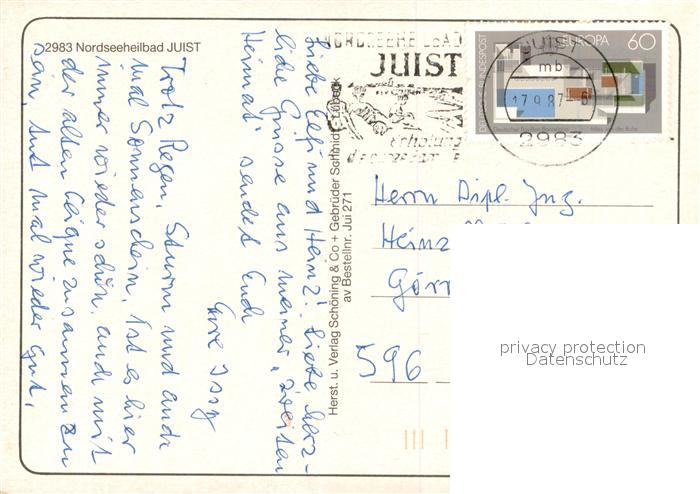 2983 Nordseeheilbad JUIST
Liebe Elf und Heinz! Liebe herz-
liche Grüsse aus meiner "zweiten
Heimat" sendet Euch
Eure Issy
Trotz Regen, Sturm und auch
mal Sonnenschein, ist es hier
immer wieder schön. auch mit
der alten Clique zusammen zu
sein, tut mal wieder gut.
Herst. u. Verlag Schöning & Co + Gebrüder Schmidt, Lübeck
av Bestellnr. Jui 271
NORDSEEHEILBAD
JUIST
Erholung
DEUTSCHE BUNDESPOST
EUROPA 60
Deutscher Pavillon Barcelona
Mies van der Rohe
JUIST
mb
17.9.87
2983
Herrn Dipl. Ing.
Heinz
Görr
596
privacy protection
Datenschutz